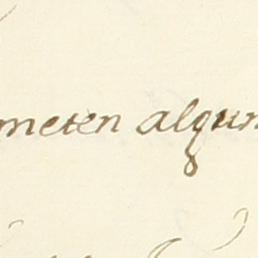 meten algun